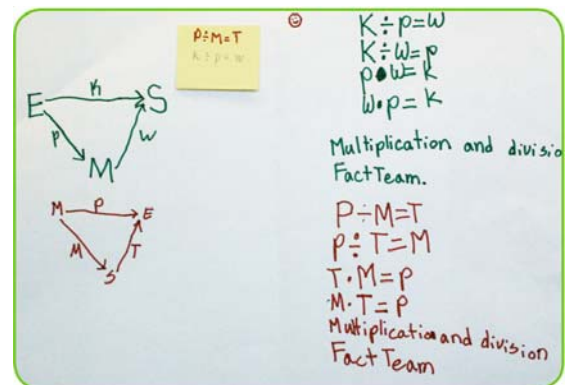 P÷M=T
K÷p=w
K
E S
P W
M
P
M E
M T
S
K÷p=W
K÷W=p
p•W=k
W•p=K
Multiplication and divisio
Fact Team.
P÷M=T
p÷T=M
T•M=p
M•T=P
Multiplication and division
Fact Team